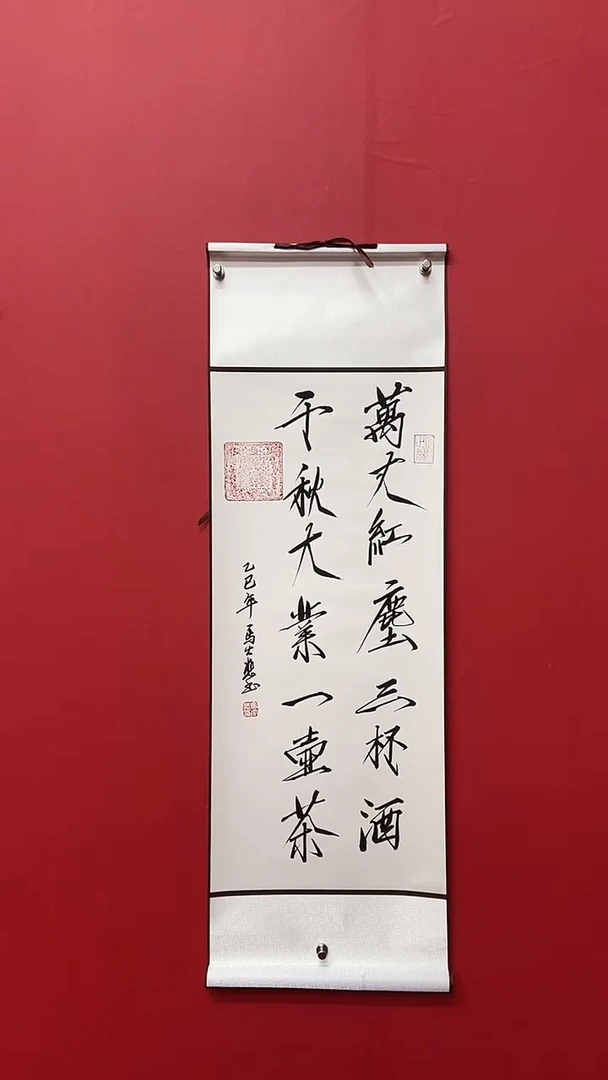 萬丈紅塵三杯酒
千秋大業一壺茶
乙巳年